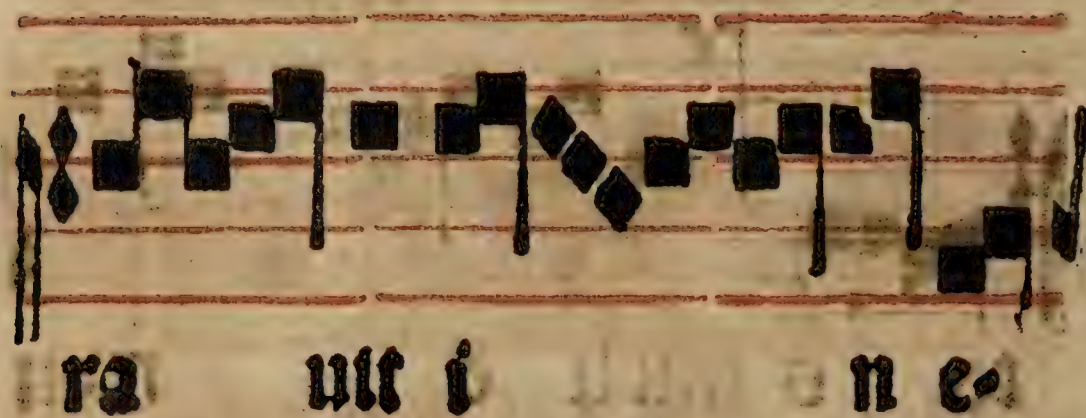 ra uit i n e-